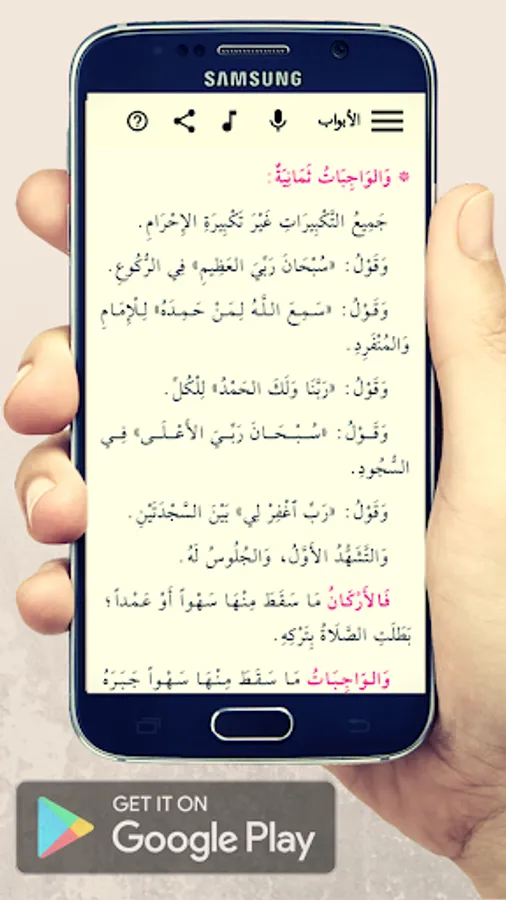 SAMSUNG
الأبواب
* وَالوَاجِبَاتُ ثَمَانِيَةٌ:
جَمِيعُ التَّكْبِيرَاتِ غَيْرَ تَكْبِيرَةِ الإِحْرَامِ.
وَقَوْلُ: «سُبْحَانَ رَبِّيَ العَظِيمِ» فِي الرُّكُوعِ.
وَقَوْلُ: «سَمِعَ اللَّهُ لِمَنْ حَمِدَهُ» لِلْإِمَامِ
وَالمُنْفَرِدِ.
وَقَوْلُ: «رَبَّنَا وَلَكَ الحَمْدُ» لِلْكُلِّ.
وَقَوْلُ: «سُبْحَانَ رَبِّيَ الأَعْلَى» فِي
السُّجُودِ.
وَقَوْلُ: «رَبِّ ٱغْفِرْ لِي» بَيْنَ السَّجْدَتَيْنِ.
وَالتَّشَهُّدُ الأَوَّلُ، وَالجُلُوسُ لَهُ.
فَالأَرْكَانُ مَا سَقَطَ مِنْهَا سَهْواً أَوْ عَمْداً؛
بَطَلَتِ الصَّلَاةُ بِتَرْكِهِ.
وَالوَاجِبَاتُ مَا سَقَطَ مِنْهَا سَهْواً جَبَرَهُ
GET IT ON
Google Play